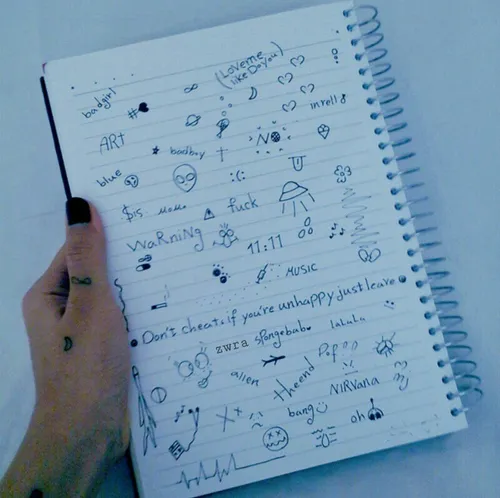 (Love me
like Do you)
badgirl
#
inrell
ART
badboy
NO
blue
$is
fuck
WaRniNg
11:11
MUSIC
Don't cheat if you're unhappy just leave
zwra
spongebab
LaLaLa
alien
theend
NIRVana
bang
oh